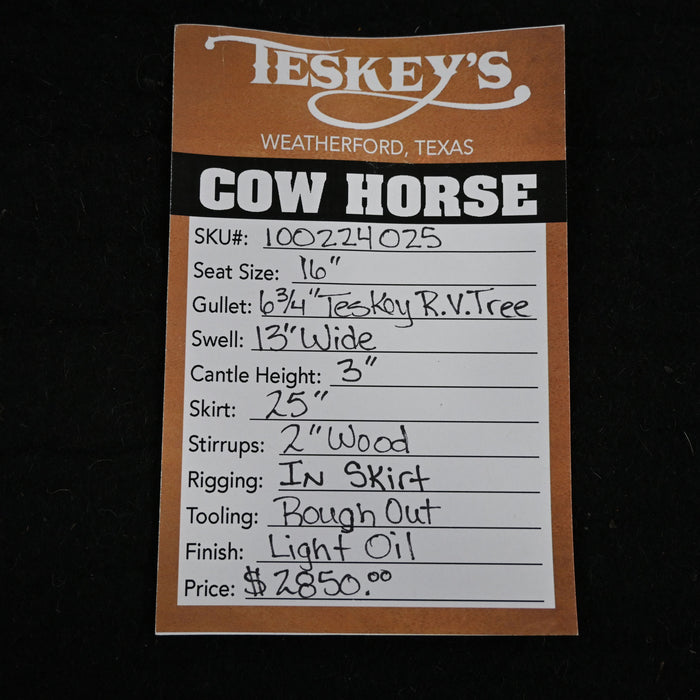 TESKEY'S
WEATHERFORD, TEXAS
COW HORSE
SKU#: 100224025
Seat Size: 16"
Gullet: 6 3/4" Teskey R.V. Tree
Swell: 13" Wide
Cantle Height: 3"
Skirt: 25"
Stirrups: 2" Wood
Rigging: In Skirt
Tooling: Rough Out
Finish: Light Oil
Price: $2850.00